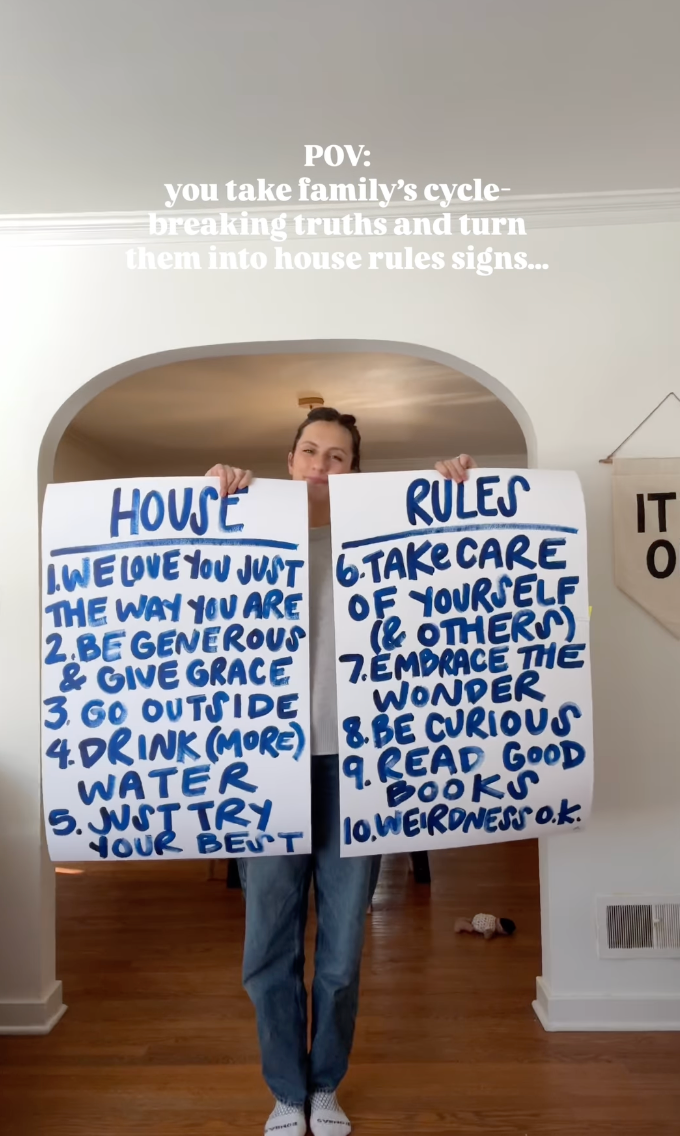 POV:
you take family's cycle-
breaking truths and turn
them into house rules signs...
HOUSE
1. WE LOVE YOU JUST
THE WAY YOU ARE
2. BE GENEROUS
& GIVE GRACE
3. GO OUTSIDE
4. DRINK (MORE)
WATER
5. JUST TRY
YOUR BEST
RULES
6. TAKE CARE
OF YOURSELF
(& OTHERS)
7. EMBRACE THE
WONDER
8. BE CURIOUS
9. READ GOOD
BOOKS
10. WEIRDNESS O.K.
IT
O